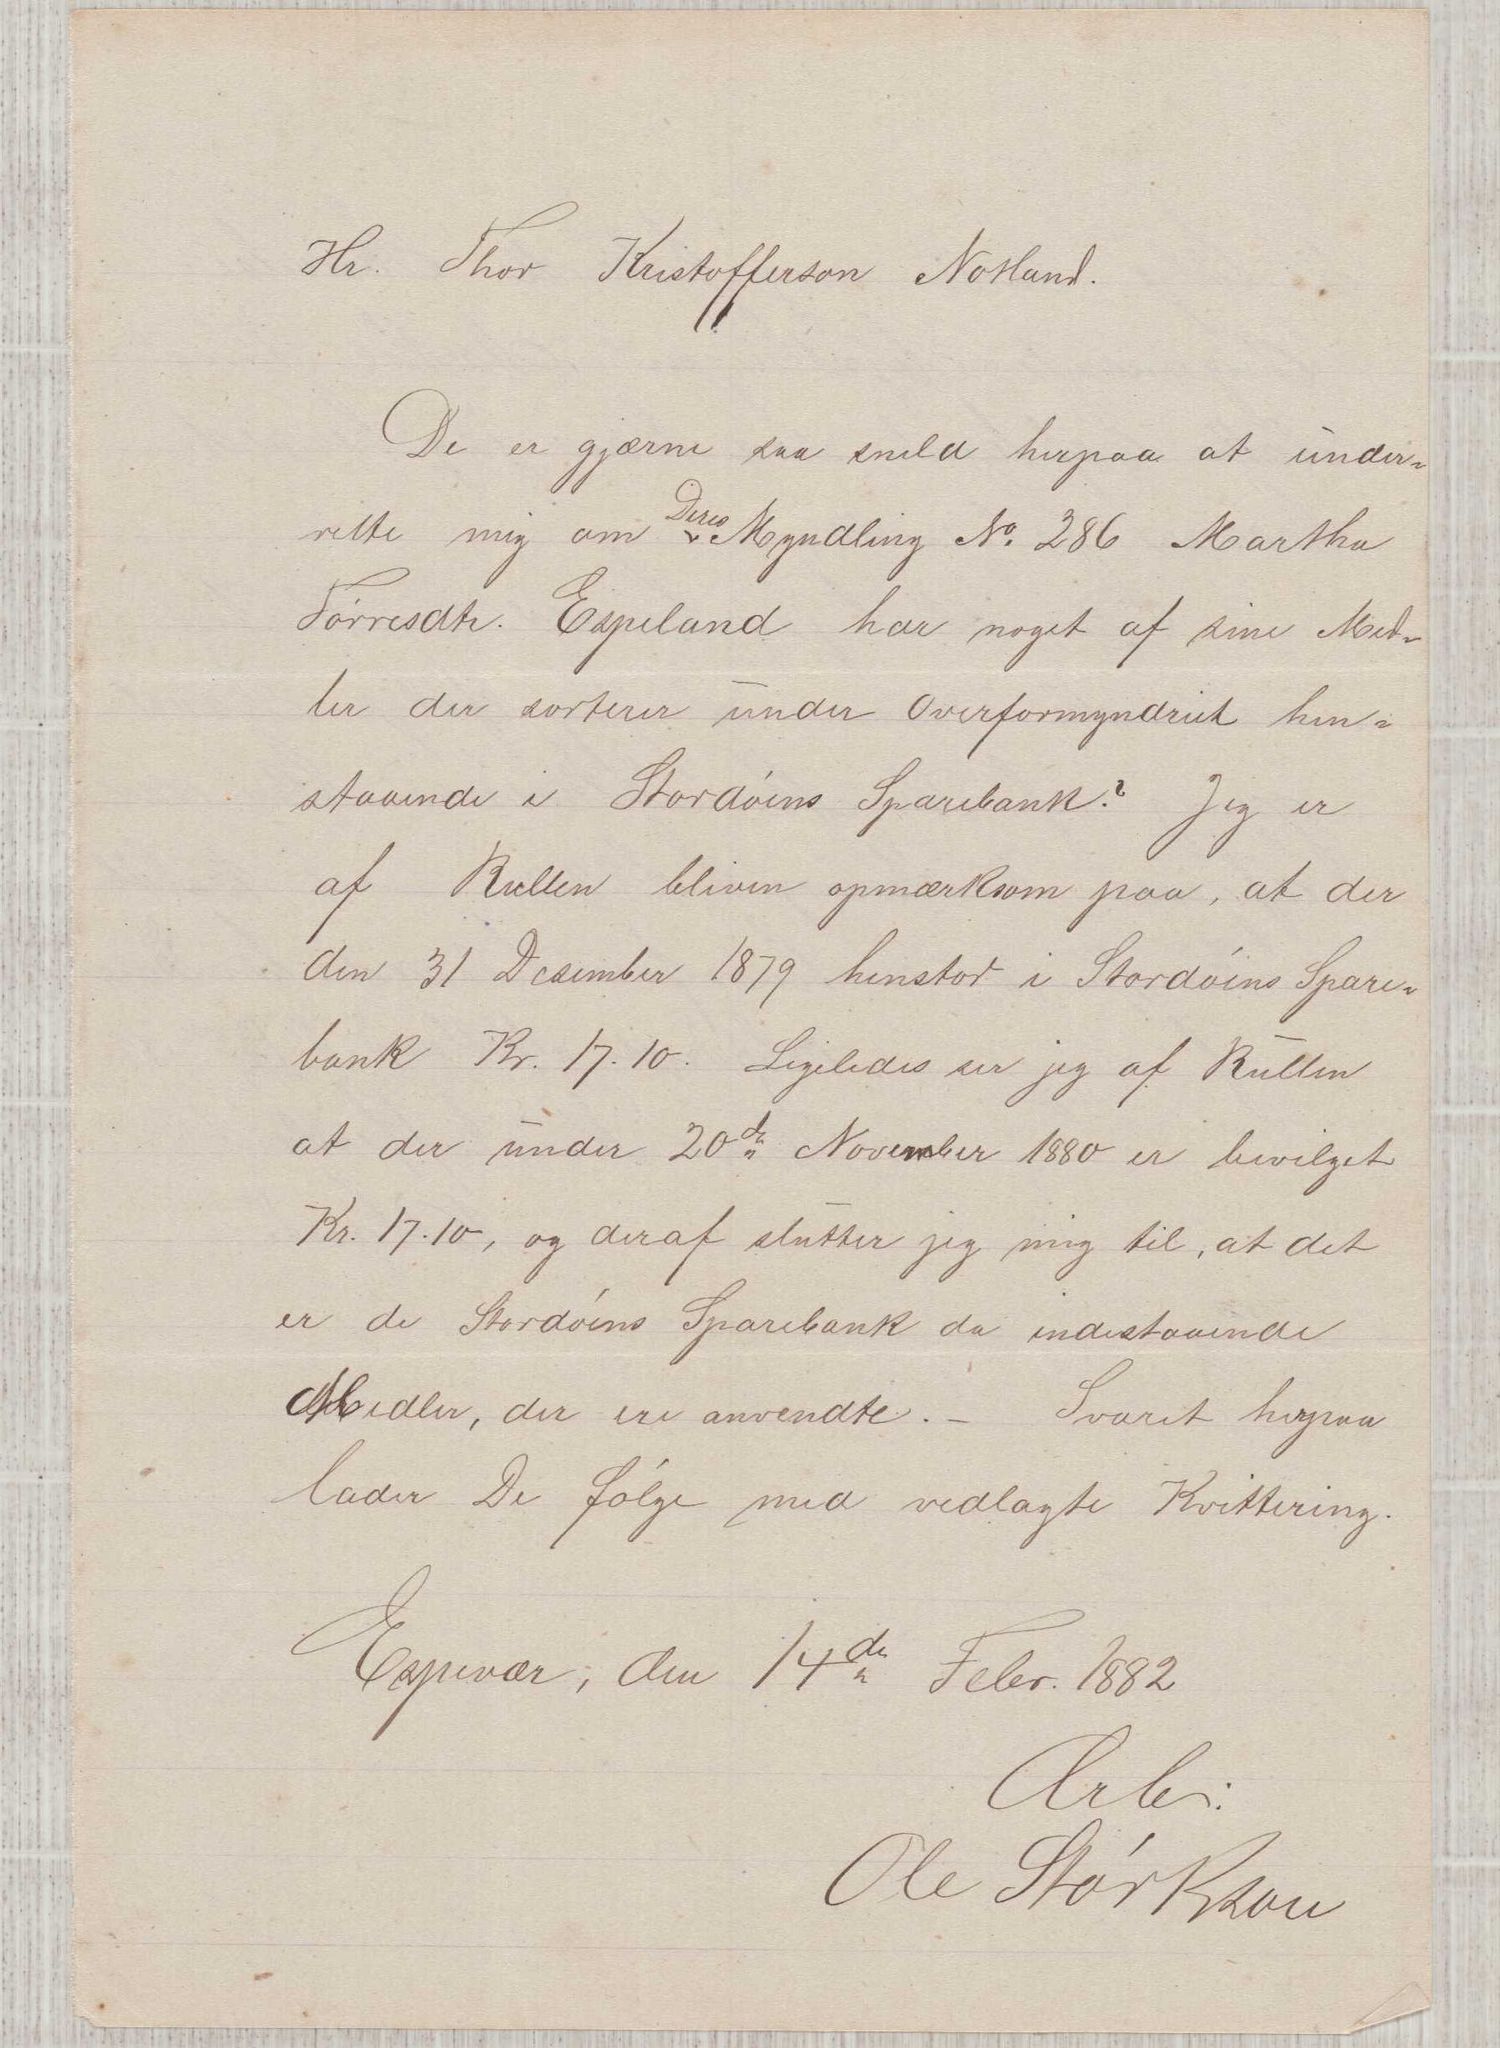 Hr. Thor Kristofferson Notland.
De er gjærne saa sneld herpaa at under-
rette mig om Deres Myndling No. 286 Martha
Tórresdtr. Espeland har noget af sine Mid-
ler der sorterer under Overformynderiet hen-
staaende i Stordóens Sparebank? Jeg er
af Rullen bliven opmærksom paa, at der
den 31 Desember 1879 henstod i Stordóens Spare-
bank Kr. 17.10. Ligeledes ser jeg af Rullen
at der under 20de November 1880 er bevilget
Kr. 17.10, og deraf slutter jeg mig til, at det
er de Stordóens Sparebank da indestaaende
Midler, der ere anvendte. — Svaret herpaa
lader De fólge med vedlagte Kvittering.
Espevær, den 14de Febr. 1882
Ærb:
Ole Stórkson